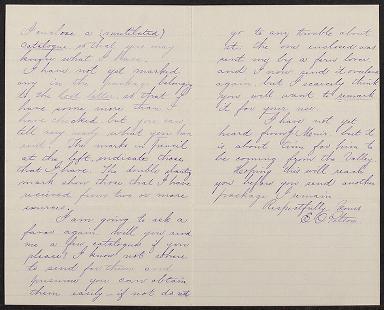 I enclose a (mutilated)
catalogue so that you may
know what I have.
I have not yet marked
my
to the last letter so that I
have some more than I
have checked but you can
tell very nearly what you can
send. The marks in pencil
at the left indicate those
that I have. The double
mark show those that I have
received from two or more
sources.
I am going to ask a
favor again. Will you send
me a few catalogues if you
please? I know not where
to send for them and
presume you can obtain
them easily – if not do not
go to any trouble about
it. The one enclosed was
sent my by a fern lover
and I now send it
again but I scarcely think
you will want to
it for your use.
I have not yet
heard from Muir but it
is about time for him to
be coming from the Valley.
Hoping this will reach
you before you send another
package I remain
Respectfully Yours